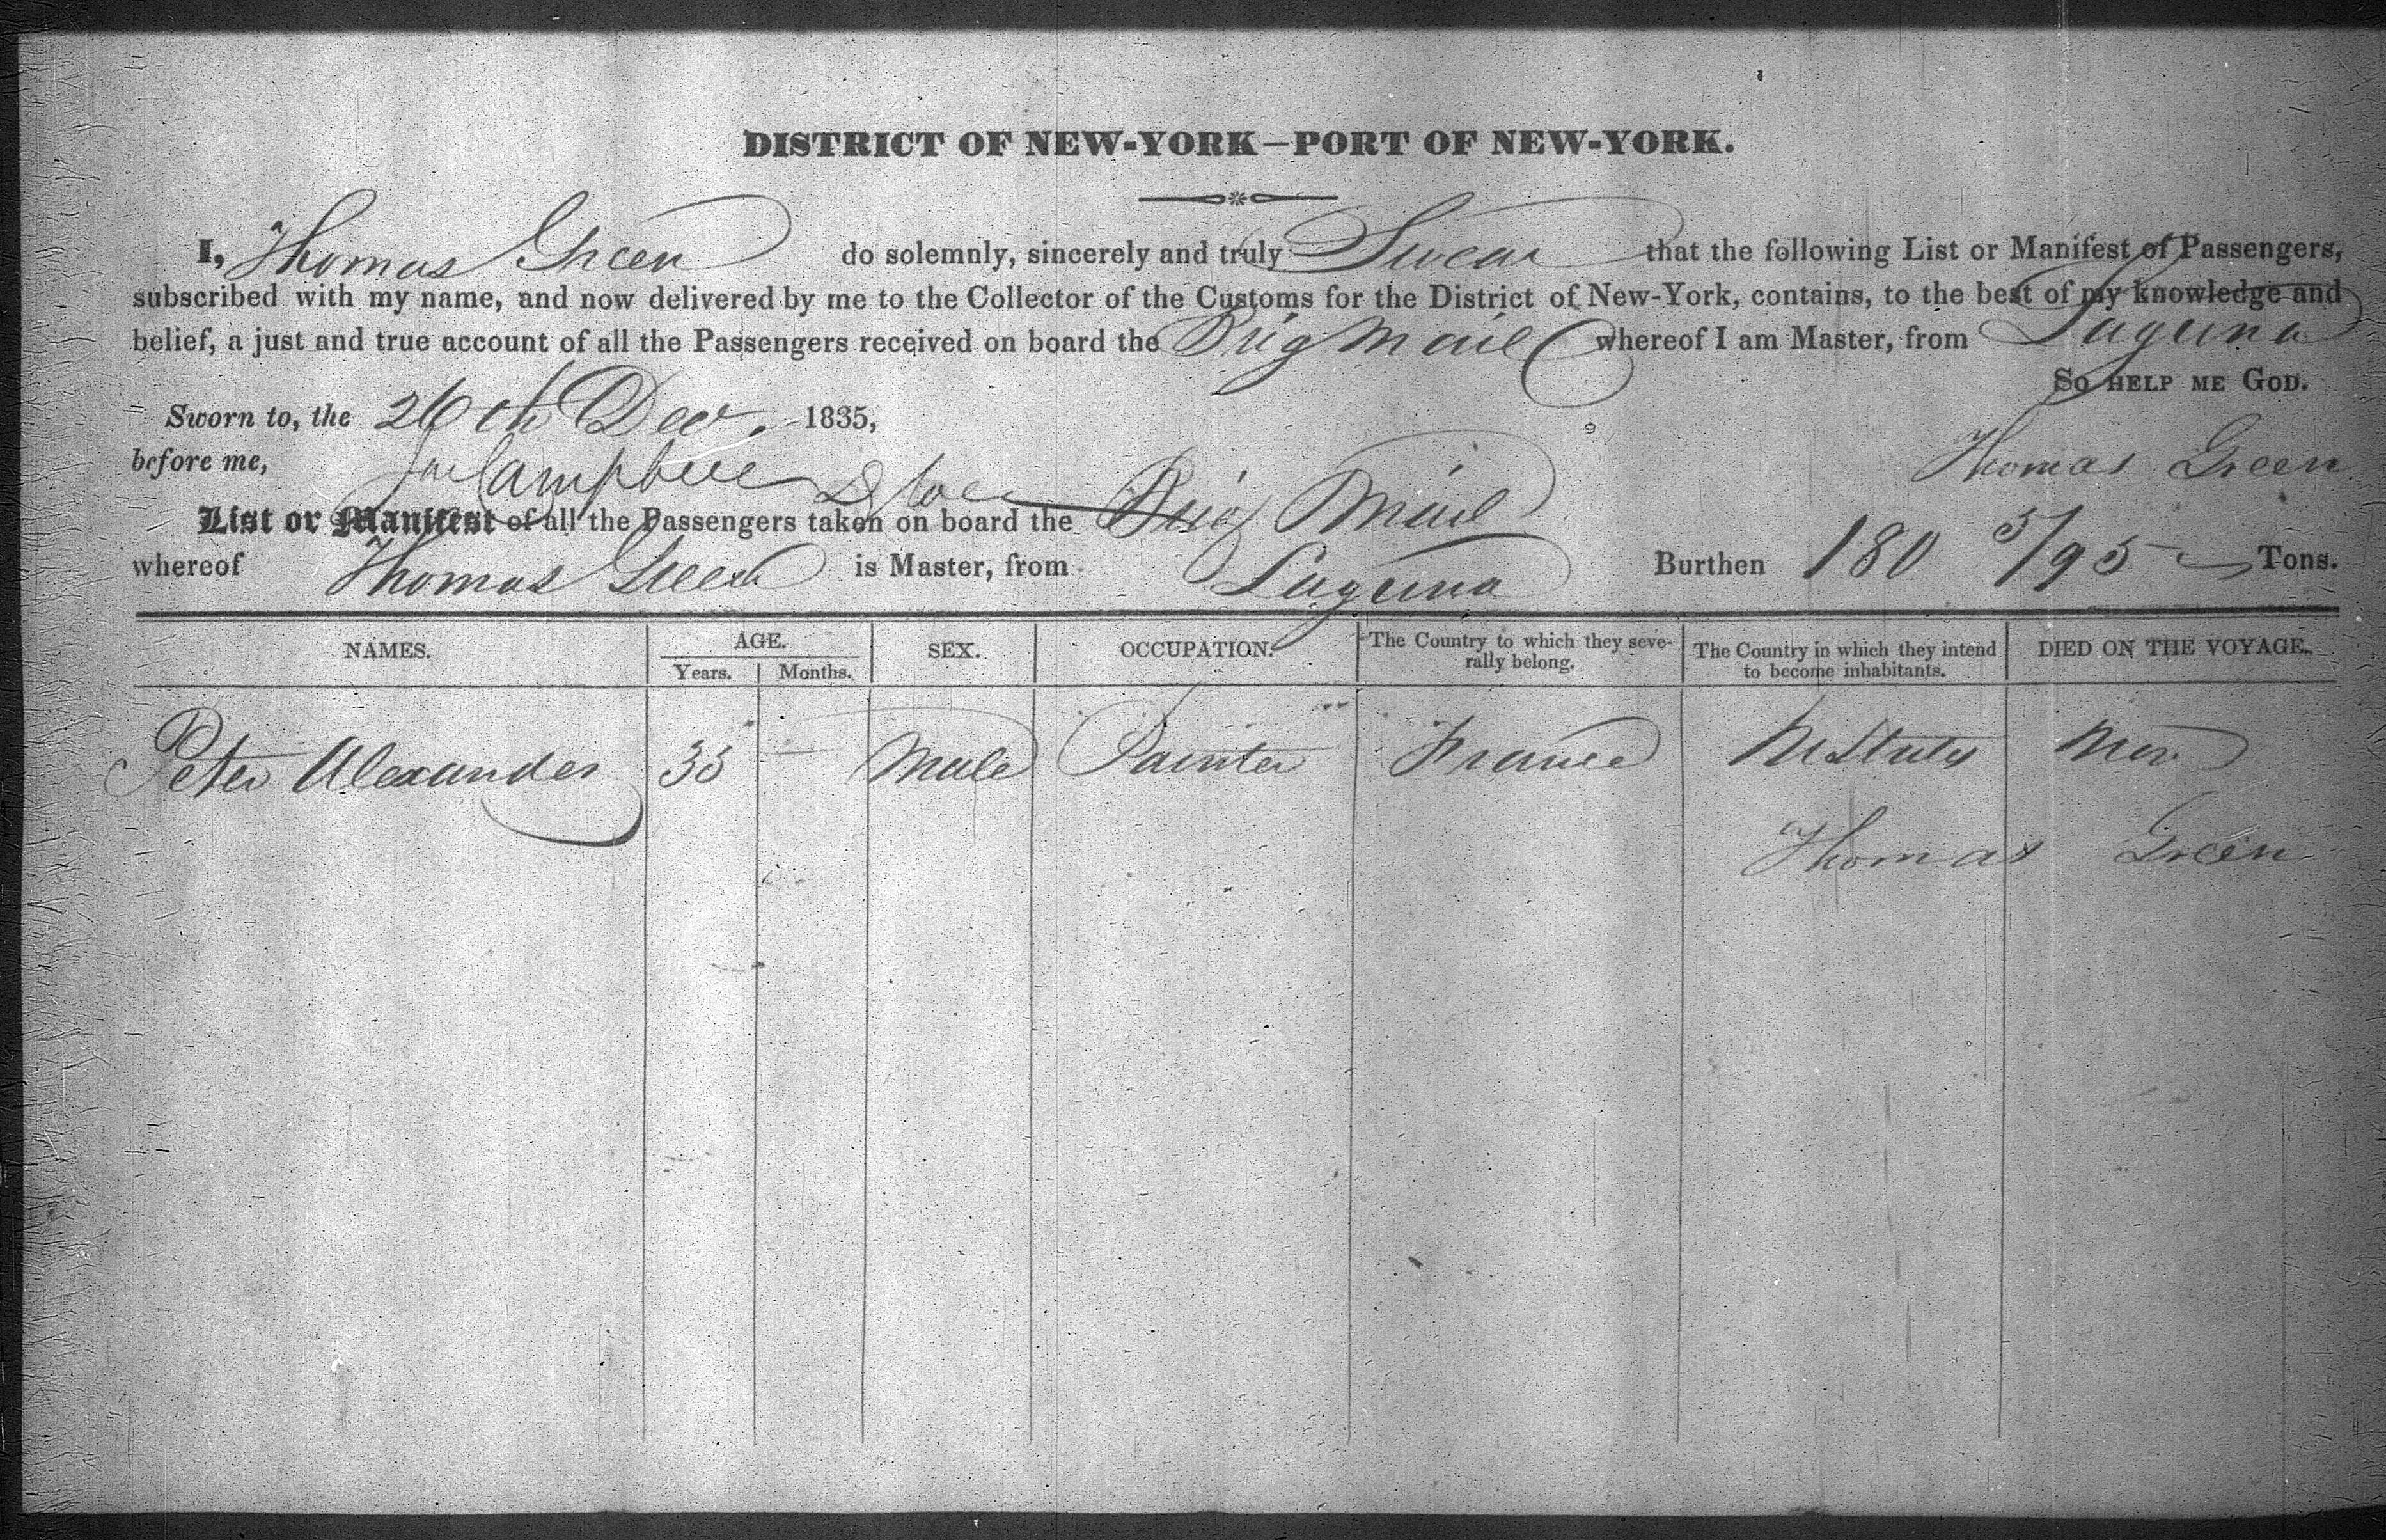 DISTRICT OF NEW-YORK—PORT OF NEW-YORK.
I, Thomas Green do solemnly, sincerely and truly Swear that the following List or Manifest of Passengers,
subscribed with my name, and now delivered by me to the Collector of the Customs for the District of New-York, contains, to the best of my knowledge and
belief, a just and true account of all the Passengers received on board the Brig Mail whereof I am Master, from Laguna
SO HELP ME GOD.
Sworn to, the 26th Dec. 1835,
before me, Campbell Thomas Green
List or Manifest of all the Passengers taken on board the Brig Mail
whereof Thomas Green is Master, from Laguna Burthen 180 5/95 Tons.
NAMES. AGE. Years. Months. SEX. OCCUPATION. The Country to which they severally belong. The Country in which they intend to become inhabitants. DIED ON THE VOYAGE.
Peter Alexander Male Painter France UStates
Thomas Green